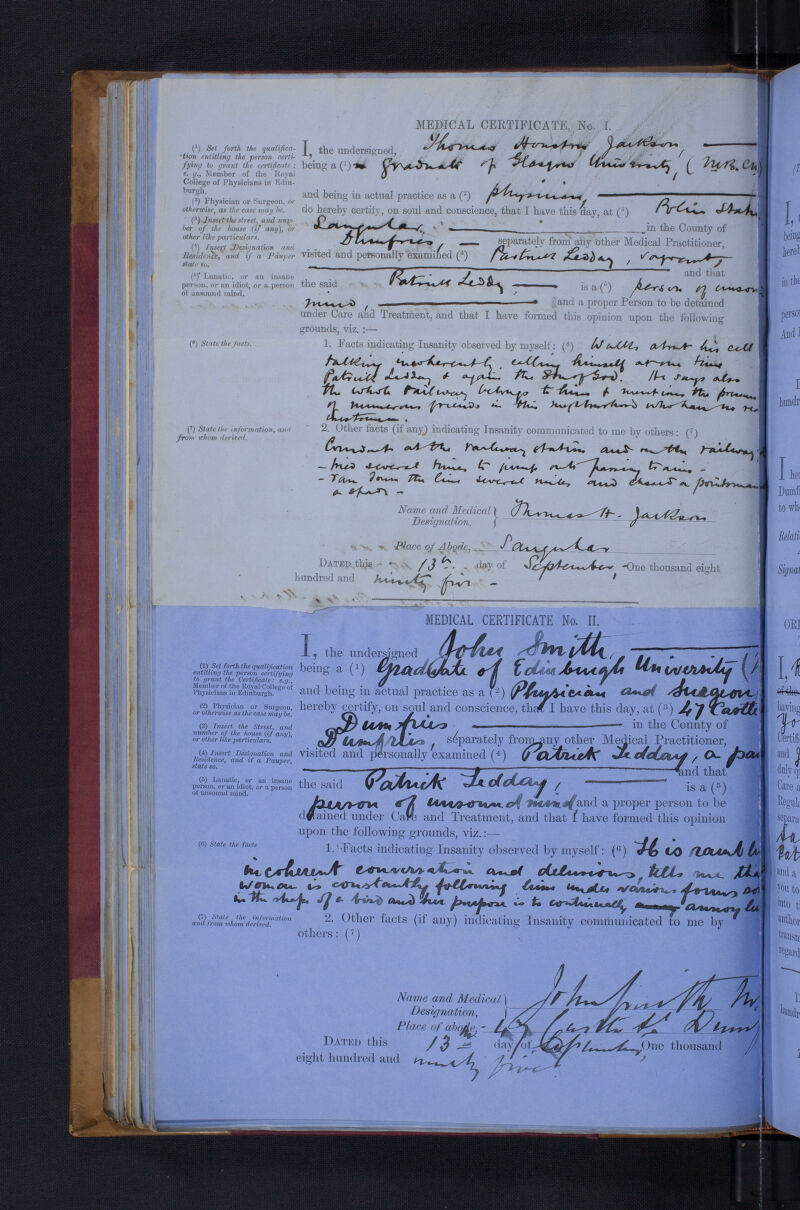 MEDICAL CERTIFICATE, No. I.
(¹) Set forth the qualifica-
tion entitling the person certi-
fying to grant the certificate;
e. g., Member of the Royal
College of Physicians in Edin-
burgh.
(²) Physician or Surgeon, or
otherwise, as the case may be.
(³) Insert the street, and num-
ber of the house (if any), or
other like particulars.
(⁴) Insert Designation and
Residence, and if a Pauper
state so.
(⁵) Lunatic, or an insane
person, or an idiot, or a person
of unsound mind.
I, the undersigned, Thomas Houston Jackson,
being a (¹) graduate of Glasgow University, (M.B. C.M
and being in actual practice as a (²) physician,
do hereby certify, on soul and conscience, that I have this day, at (³) Police Stat
Sanquhar, in the County of
Dumfries, separately from any other Medical Practitioner,
visited and personally examined (⁴) Patrick Ledday, vagrant,
and that
the said Patrick Ledday is a (⁵) person of unsoun
mind, and a proper Person to be detained
under Care and Treatment, and that I have formed this opinion upon the following
grounds, viz. :—
(⁶) State the facts.
1. Facts indicating Insanity observed by myself: (⁶) Walks about his cell
talking incoherently, calling himself at one time
Patrick Ledday & again the Son of God. He says also
the whole railway belongs to him & mentions the presence
of numerous friends in this neighbourhood who have no
existence.
(⁷) State the information, and
from whom derived.
2. Other facts (if any) indicating Insanity communicated to me by others: (⁷)
Conduct at the railway station and on the railway
– tried several times to jump onto passing trains –
– ran down the line several miles and chased a pointsman
a spade –
Name and Medical
Designation, Thomas H. Jackson
Place of Abode, Sanquhar
DATED this 13th day of September, One thousand eight
hundred and ninety five –
MEDICAL CERTIFICATE No. II.
(1) Set forth the qualification
entitling the person certifying
to grant the Certificate: e.g.,
Member of the Royal College of
Physicians in Edinburgh.
(2) Physician or Surgeon,
or otherwise as the case may be.
(3) Insert the Street, and
number of the house (if any),
or other like particulars.
(4) Insert Designation and
Residence, and if a Pauper,
state so.
(5) Lunatic, or an insane
person, or an idiot, or a person
of unsound mind.
I, the undersigned John Smith,
being a (¹) Graduate of Edinburgh University (
and being in actual practice as a (²) Physician and Surgeon,
hereby certify, on soul and conscience, that I have this day, at (³) 47 Castle
Dumfries in the County of
Dumfries, separately from any other Medical Practitioner,
visited and personally examined (⁴) Patrick Ledday, a pa
and that
the said Patrick Ledday, is a (⁵)
person of unsound mind and a proper person to be
detained under Care and Treatment, and that I have formed this opinion
upon the following grounds, viz.:—
(6) State the facts
1. Facts indicating Insanity observed by myself: (⁶) He is
incoherent conversation and delusions, tells me tha
woman is constantly following him under various forms
in the shape of a bird and her purpose is to continually annoy
(7) State the information
and from whom derived.
2. Other facts (if any) indicating Insanity communicated to me by
others: (⁷)
Name and Medical
Designation, John Smith M.
Place of abode, - 47 Castle St Dum
DATED this 13th day of September, One thousand
eight hundred and ninety five